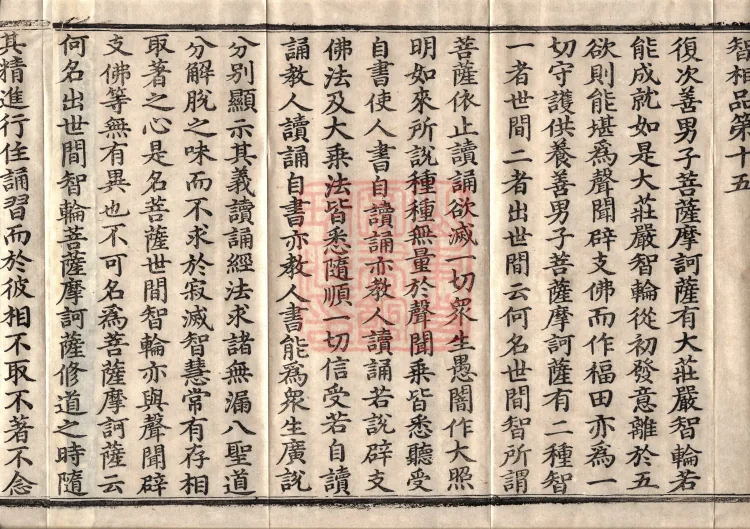 智相品第十五
復次善男子菩薩摩訶薩有大莊嚴智輪若
能成就如是大莊嚴智輪從初發意離於五
欲則能堪爲聲聞辟支佛而作福田亦爲一
切守護供養善男子菩薩摩訶薩有二種智
一者世間二者出世間云何名世間智所謂
菩薩依止讀誦欲滅一切衆生愚闇作大照
明如來所說種種無量於聲聞乘皆悉聽受
自書使人書自讀誦亦教人讀誦若說辟支
佛法及大乘法皆悉隨順一切信受若自讀
誦教人讀誦自書亦教人書能爲衆生廣說
分別顯示其義讀誦經法求諸無漏八聖道
分解脫之味而不求於寂滅智慧常有存相
取著之心是名菩薩世間智輪亦與聲聞辟
支佛等無有異也不可名爲菩薩摩訶薩云
何名出世間智輪菩薩摩訶薩修道之時隨
其精進行住誦習而於彼相不取不著不念